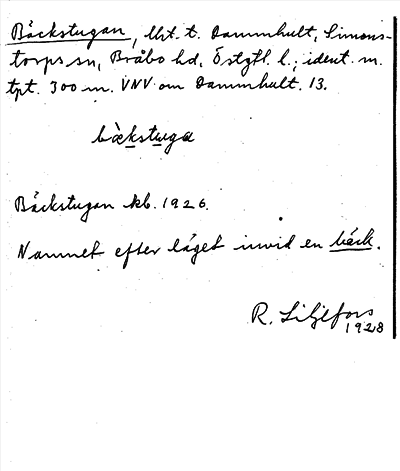 Bäckstugan, lht. t. Dammhult, Simons-
torps sn, Bråbo hd, Östgtl. l.; ident. m.
tpt. 300 m. VNV om Dammhult. 13.
bäkstuga
Bäckstugan kb. 1926.
Namnet efter läget invid en bäck.
R. Liljefors
1928